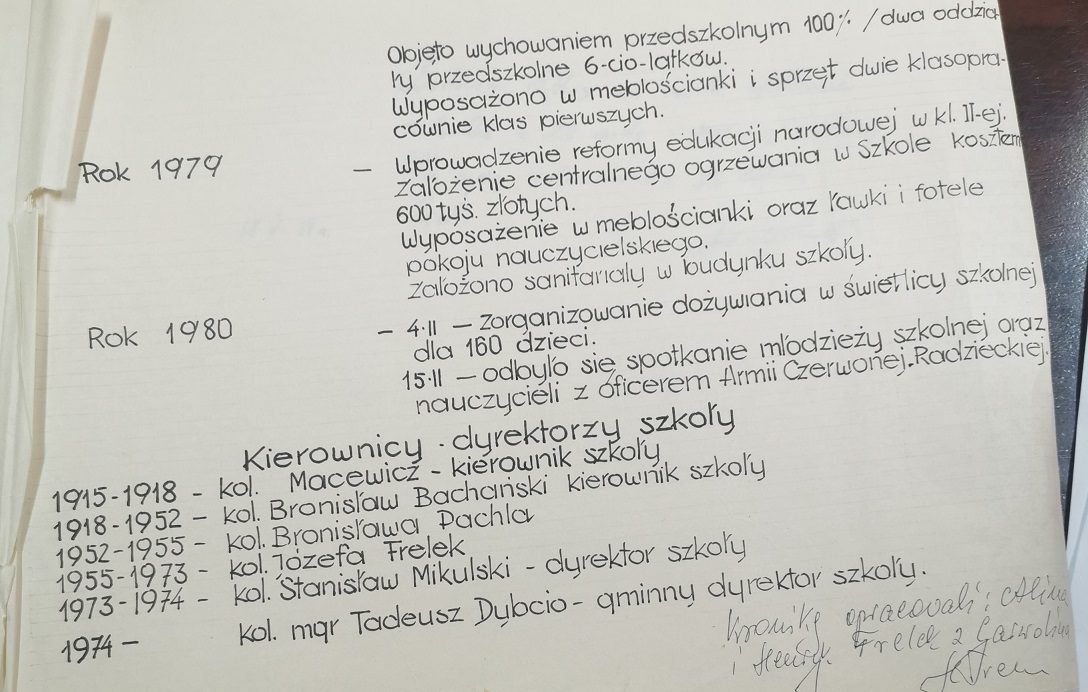 Objęto wychowaniem przedszkolnym 100% /dwa oddzia
ły przedszkolne 6-cio-latków.
Wyposażono w meblościanki i sprzęt dwie klasopra-
cownie klas pierwszych.
Rok 1979 — Wprowadzenie reformy edukacji narodowej w kl. II-ej.
Założenie centralnego ogrzewania w Szkole kosztem
600 tyś. złotych.
Wyposażenie w meblościanki oraz ławki i fotele
pokoju nauczycielskiego.
Założono sanitariały w budynku szkoły.
Rok 1980 — 4·II — Zorganizowanie dożywiania w świetlicy szkolnej
dla 160 dzieci.
15·II — odbyło się spotkanie młodzieży szkolnej oraz
nauczycieli z oficerem Armii Czerwonej.Radzieckiej.
Kierownicy - dyrektorzy szkoły
1915-1918 - kol. Macewicz - kierownik szkoły
1918-1952 - kol. Bronisław Bachański kierownik szkoły
1952-1955 - kol. Bronisława Pachla
1955-1973 - kol. Józefa Frelek
1973-1974 - kol. Stanisław Mikulski - dyrektor szkoły
1974 - kol. mgr Tadeusz Dybcio - gminny dyrektor szkoły.
Kronikę opracowali: Alina
i Henryk Frelek z